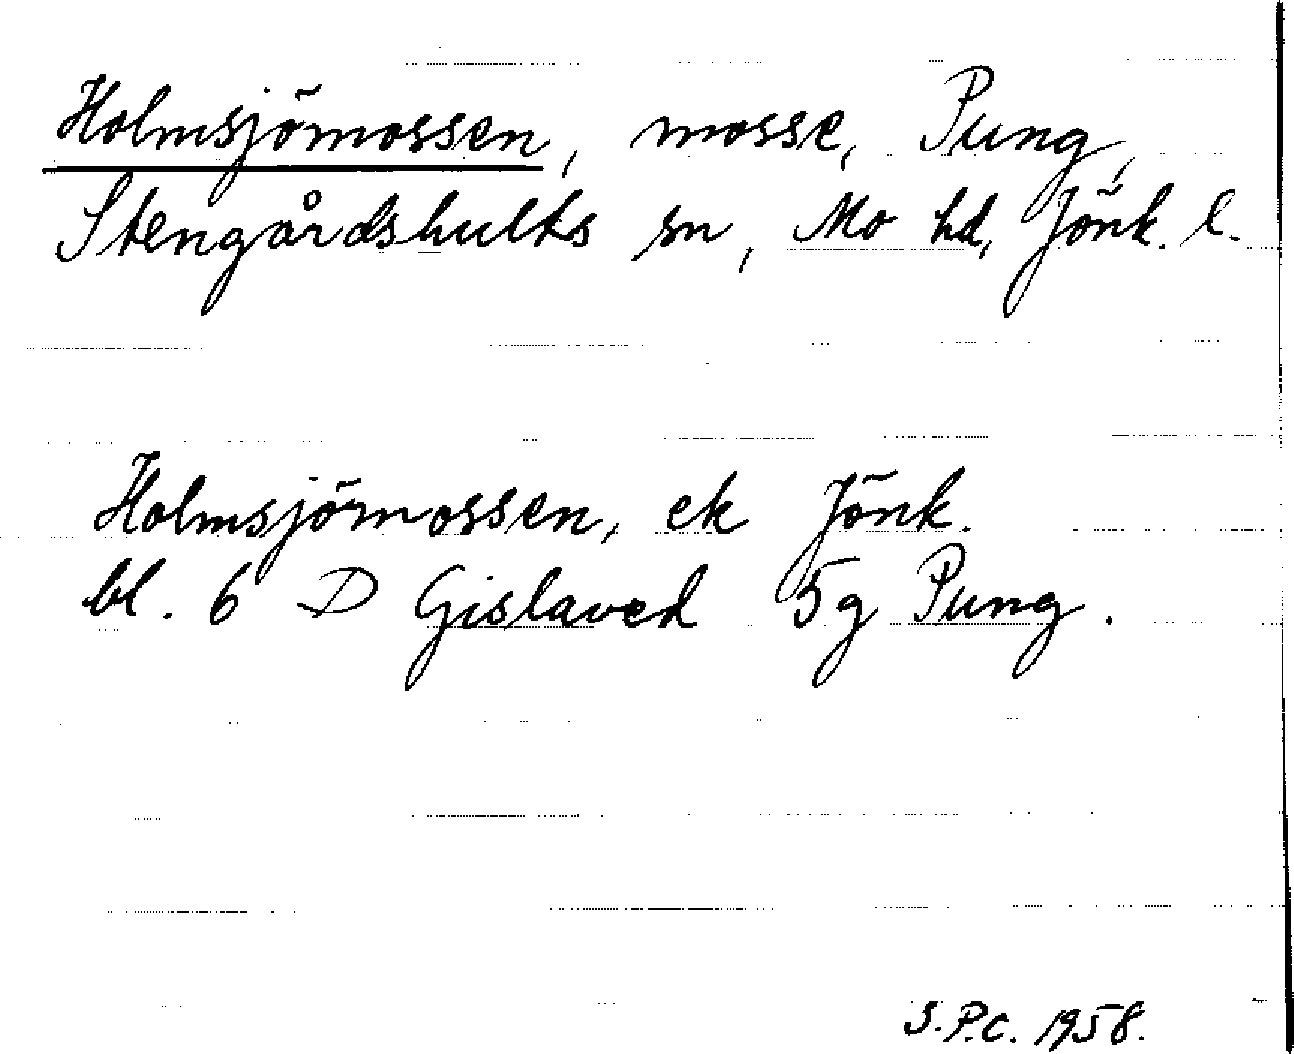 Holmsjömossen, mosse, Pung,
Stengårdshults sn, Mo hd, Jönk. l.
Holmsjömossen, ek Jönk.
bl. 6 D Gislaved 5g Pung.
S.P.C. 1958.